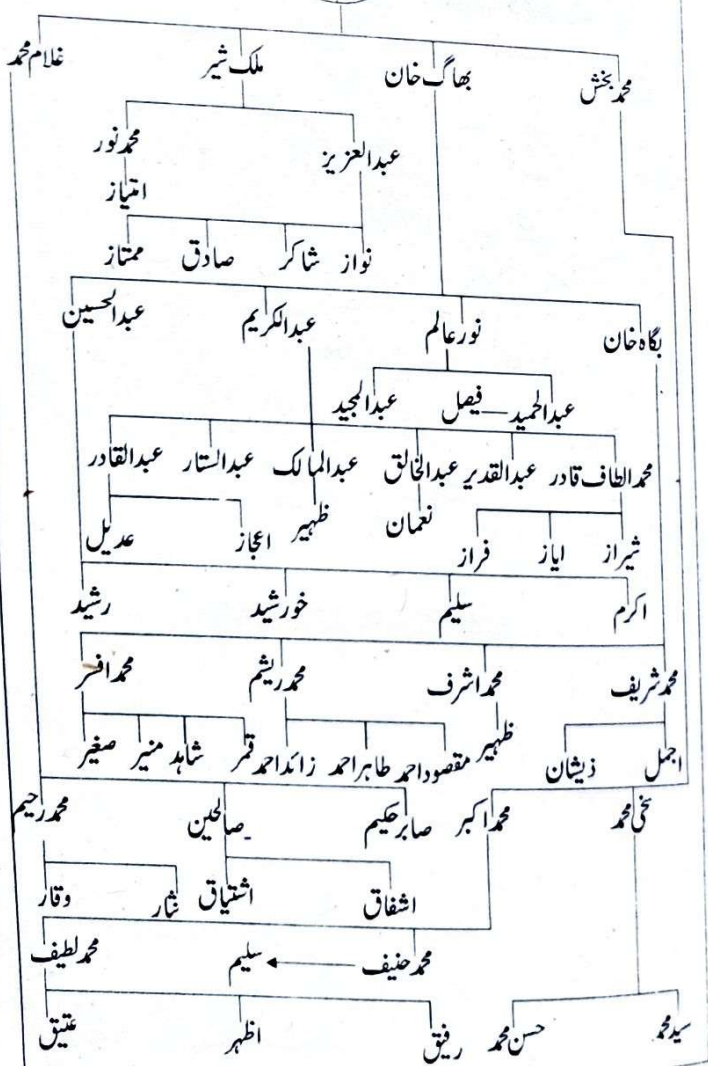 محمد بخش بھاگ خان ملک شیر غلام محمد
عبدالعزیز محمد نور
امتیاز
نواز شاکر صادق ممتاز
بگاہ خان نور عالم عبدالکریم عبدالحسین
عبدالحمید فیصل عبدالمجید
محمد الطاف قادر عبدالقدیر عبدالخالق عبدالمالک عبدالستار عبدالقادر
شیراز ایاز فراز نعمان ظہیر اعجاز عدیل
اکرم سلیم خورشید رشید
محمد شریف محمد اشرف محمد ریشم محمد افسر
اجمل ذیشان ظہیر مقصود احمد طاہر احمد زائد احمد قمر شاہد منیر صغیر
سخی محمد محمد اکبر صابر حکیم صالحین محمد رحیم
اشفاق اشتیاق نثار وقار
محمد حنیف سلیم محمد لطیف
سید محمد حسن محمد رفیق اظہر عتیق